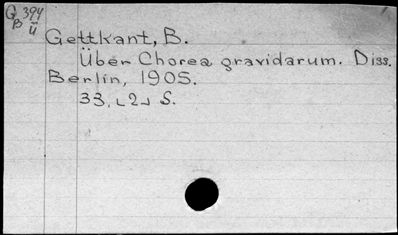 G 394
B ü
Gettkant, B.
Über Chorea gravidarum. Diss.
Berlin, 1905.
33, ⌞2⌟ S.